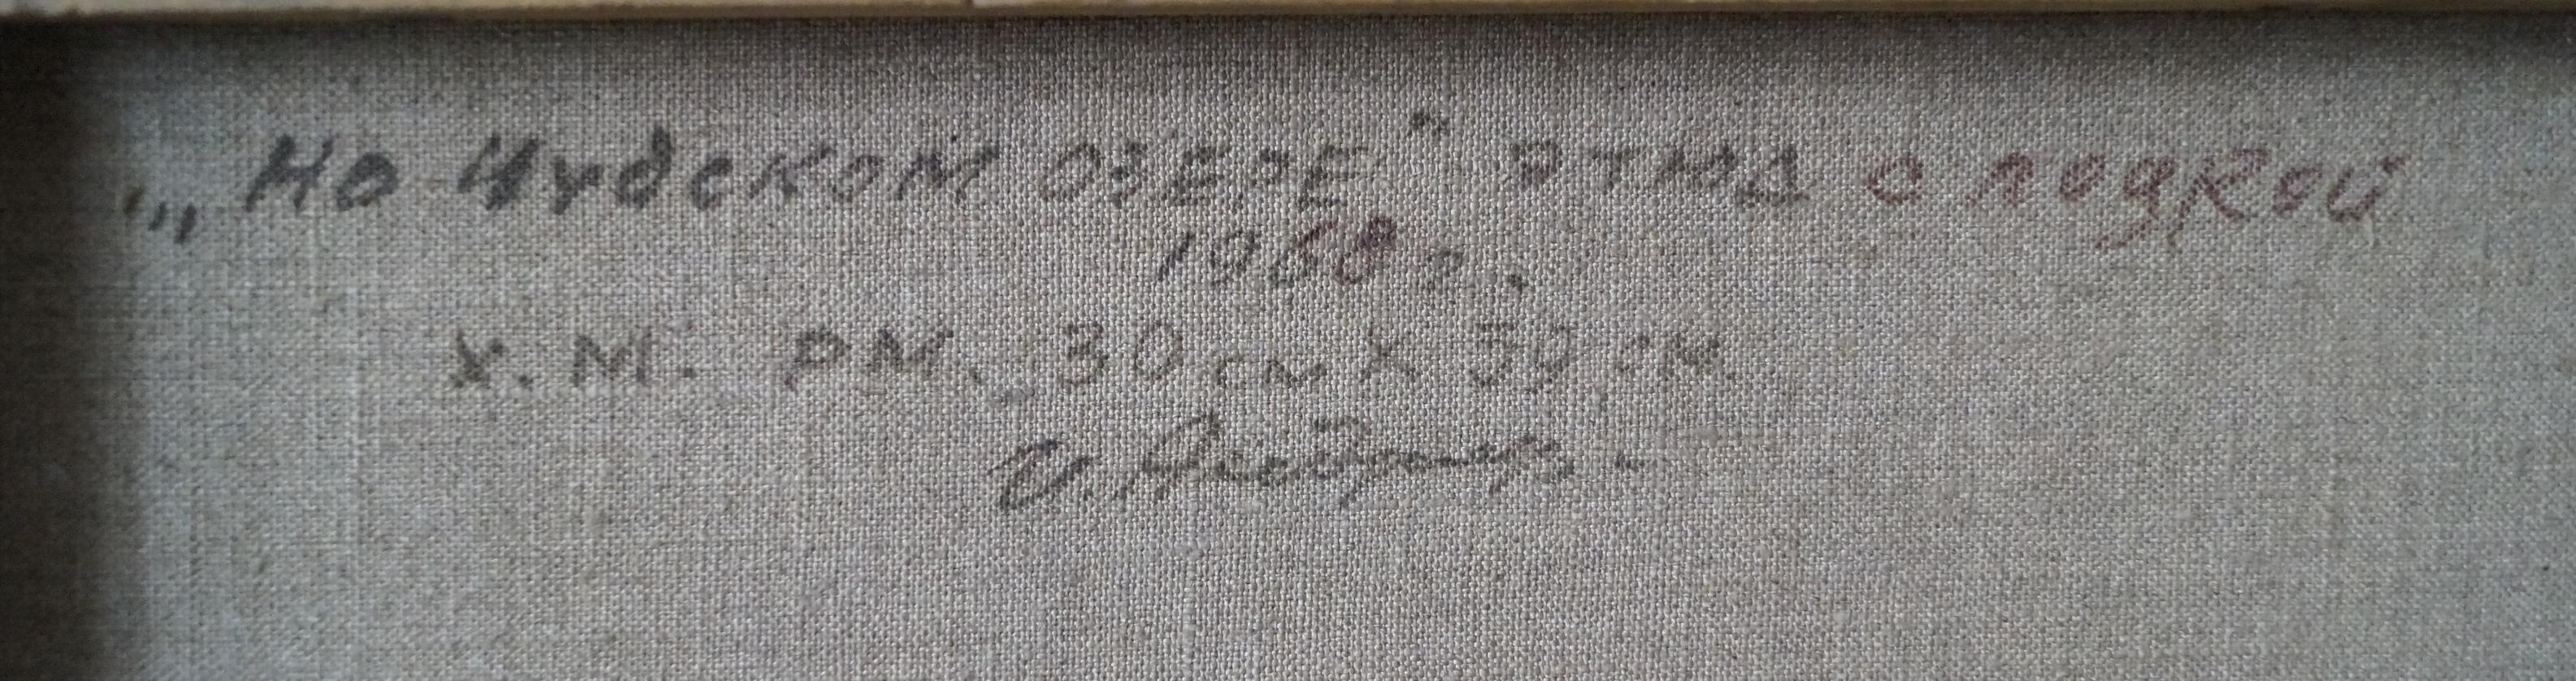 „На Чудском ОЗЕРЕ" ЭТЮД с лодкой
1968 г.
Х. М. РМ. 30 см х 50 см.